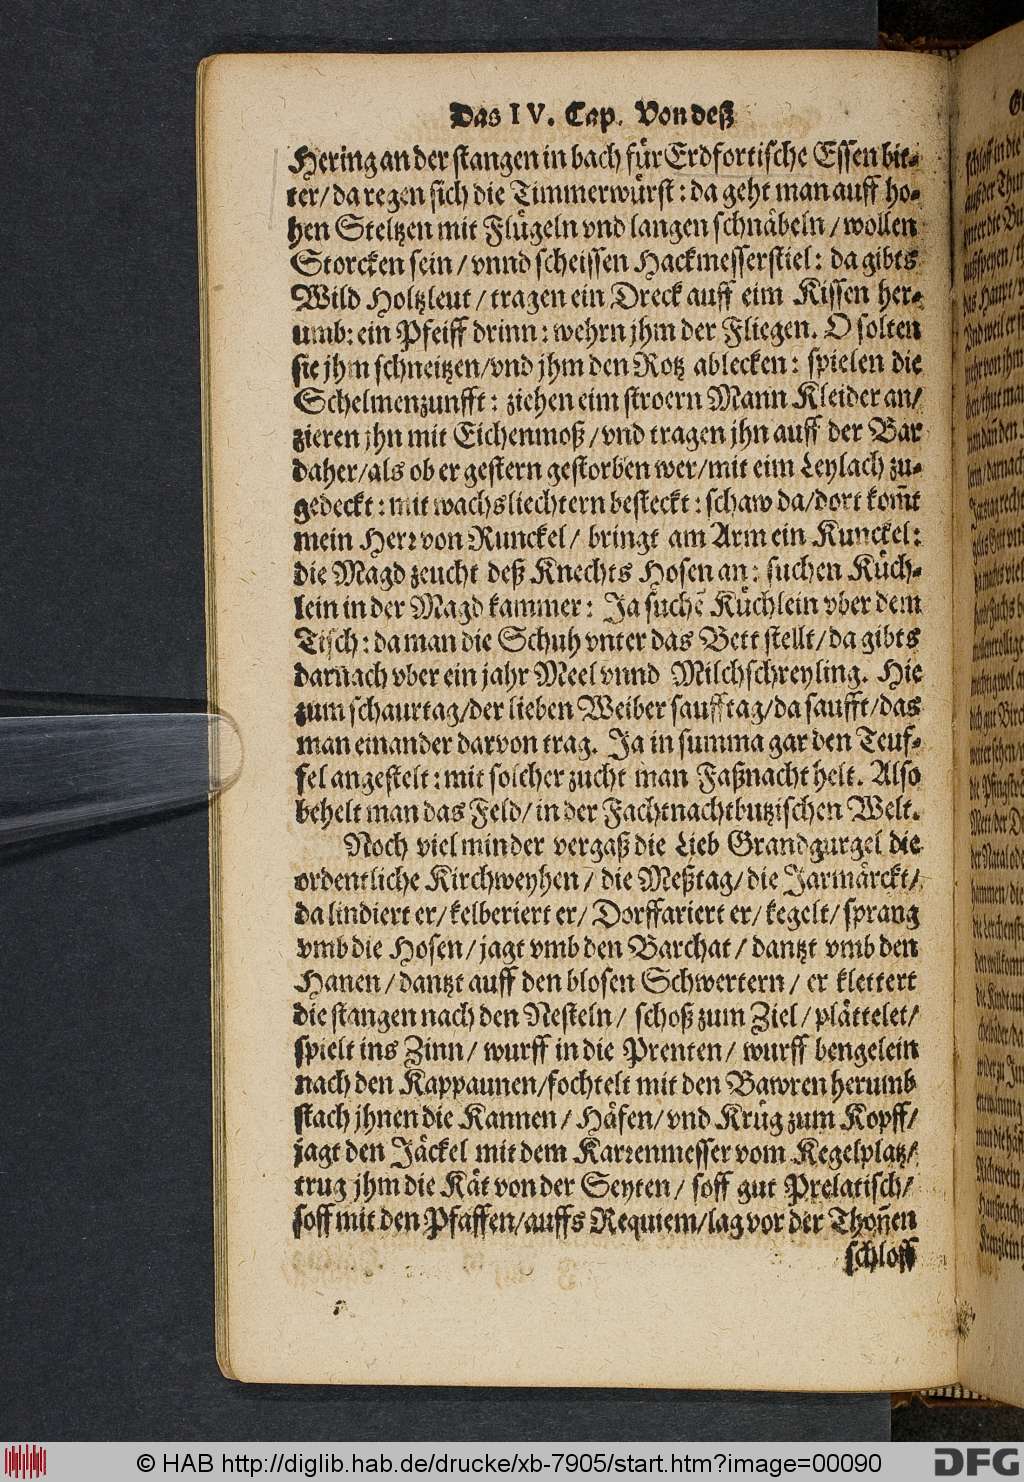 Das IV. Cap. Von deß
Hering an der stangen in bach für Erdfortische Essen bit-
ter/ da regen sich die Timmerwürst: da geht man auff ho-
hen Steltzen mit Flügeln vnd langen schnäbeln / wollen
Storcken sein / vnnd scheissen Hackmesserstiel: da gibts
Wild Holtzleut / tragen ein Dreck auff eim Kissen her-
umb: ein Pfeiff drinn: wehrn jhm der Fliegen. O solten
sie jhm schneitzen/vnd jhm den Rotz ablecken: spielen die
Schelmenzunfft: ziehen eim stroern Mann Kleider an/
zieren jhn mit Eichenmoß /vnd tragen jhn auff der Bar
daher/als ob er gestern gestorben wer/mit eim Leylach zu-
gedeckt: mit wachsliechtern besteckt: schaw da/dort kom̃t
mein Herr von Runckel/ bringt am Arm ein Kunckel:
die Magd zeucht deß Knechts Hosen an: suchen Küch-
lein in der Magd kammer: Ja suchẽ Küchlein vber dem
Tisch: da man die Schuh vnter das Bett stellt/da gibts
darnach vber ein jahr Meel vnnd Milchschreyling. Hie
zum schaurtag/der lieben Weiber saufftag/da saufft/das
man einander darvon trag. Ja in summa gar den Teuf-
fel angestelt: mit solcher zucht man Faßnacht helt. Also
behelt man das Feld/ in der Fachtnachtbutzischen Welt.
Noch viel minder vergaß die Lieb Grandgurgel die
ordentliche Kirchweyhen / die Meßtag/ die Jarmärckt/
da lindiert er/ kelberiert er/ Dorffariert er/ kegelt/ sprang
vmb die Hosen/ jagt vmb den Barchat / dantzt vmb den
Hanen / dantzt auff den blosen Schwertern / er klettert
die stangen nach den Nesteln/ schoß zum Ziel / plättelet/
spielt ins Zinn / wurff in die Prenten/ wurff bengelein
nach den Kappaunen/fochtelt mit den Bawren herumb
stach jhnen die Kannen / Häfen/ vnd Krüg zum Kopff/
jagt den Jäckel mit dem Karrenmesser vom Kegelplatz/
trug jhm die Kät von der Seyten / soff gut Prelatisch/
soff mit den Pfaffen/auffs Requiem/lag vor der Thoñen
schloff
© HAB http://diglib.hab.de/drucke/xb-7905/start.htm?image=00090
DFG